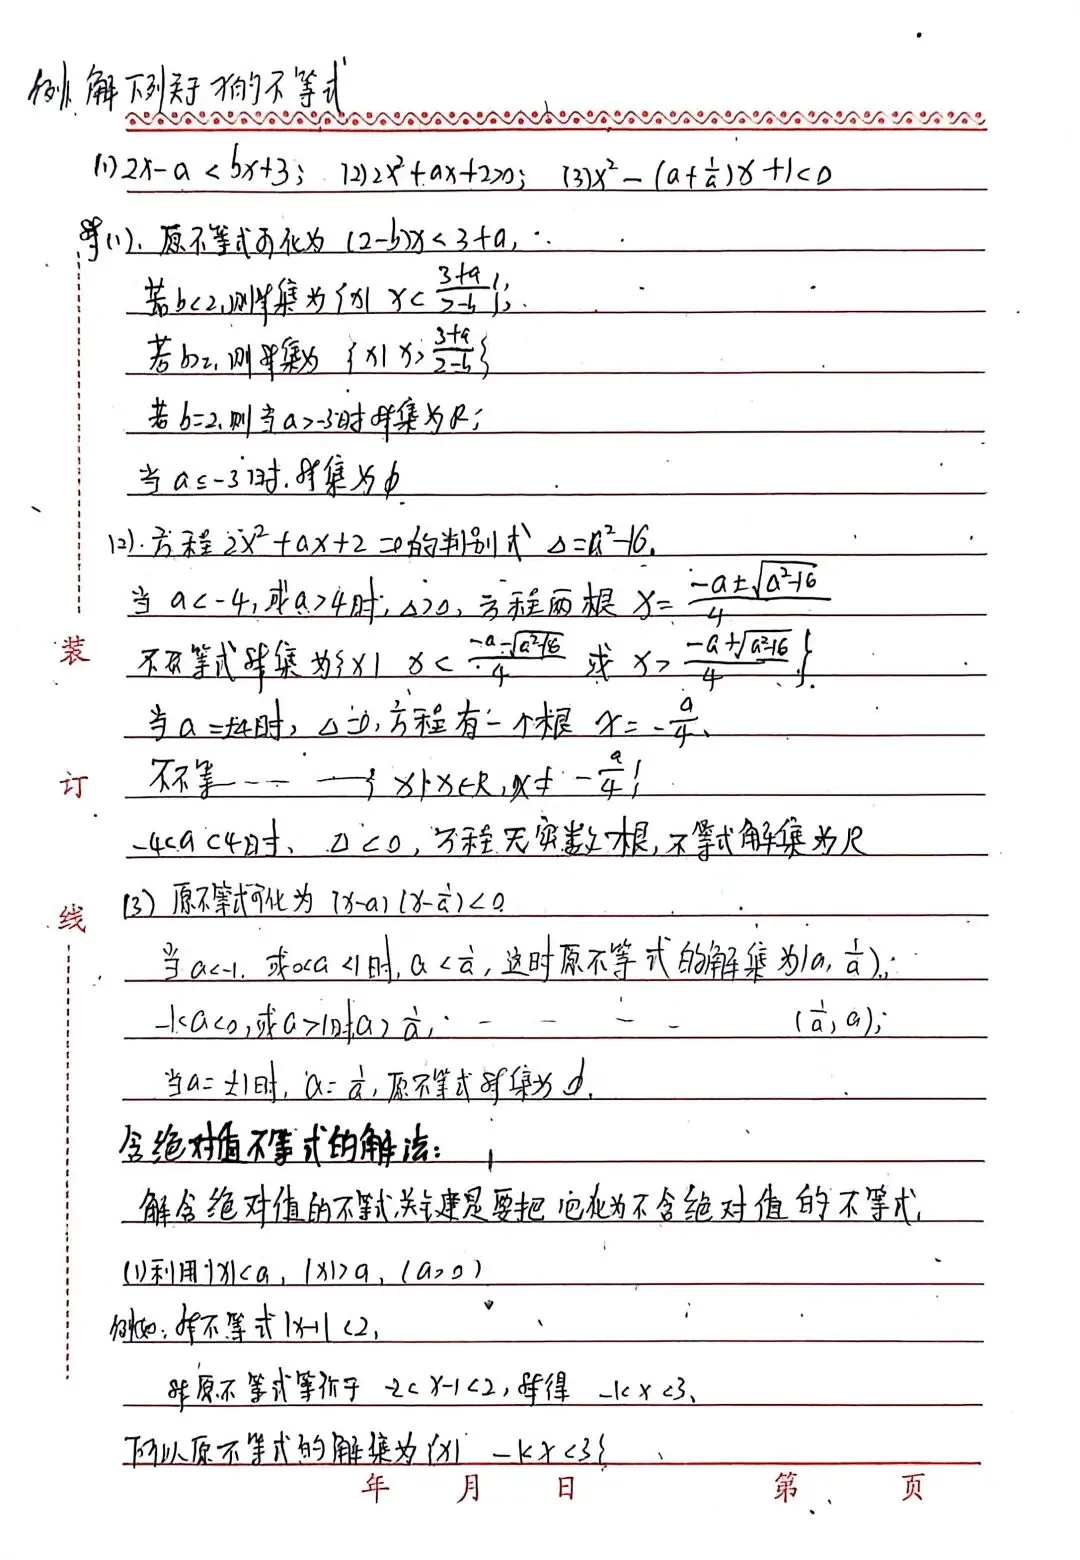 例1. 解下列关于x的不等式
(1) 2x-a<bx+3; (2) 2x²+ax+2>0; (3) x²-(a+1/a)x+1<0
解(1). 原不等式可化为 (2-b)x<3+a,
若b<2,则解集为{x| x<(3+a)/(2-b)};
若b>2,则解集为 {x| x>(3+a)/(2-b)}
若b=2,则当a>-3时解集为R;
当 a≤-3时.解集为φ
(2).方程2x²+ax+2=0的判别式 Δ=a²-16.
当 a<-4,或a>4时,Δ>0, 方程两根 x=(-a±√(a²-16))/4
不等式解集为{x| x<(-a-√(a²-16))/4 或 x>(-a+√(a²-16))/4}
当a=±4时, Δ=0,方程有一个根 x=-a/4.
不等————{x|x∈R,x≠-a/4}
-4<a<4时、Δ<0,方程无实数根,不等式解集为R
(3) 原不等式可化为 (x-a)(x-1/a)<0
当a<-1. 或0<a<1时,a<1/a,这时原不等式的解集为(a,1/a);
-1<a<0,或a>1时,a>1/a, - - - - (1/a,a);
当a=±1时, a=1/a,原不等式解集为φ.
含绝对值不等式的解法:
解含绝对值的不等式,关键是要把它化为不含绝对值的不等式,
(1)利用|x|<a, |x|>a, (a>0)
例如:解不等式|x-1|<2,
解原不等式等价于 -2<x-1<2,解得 -1<x<3、
所以原不等式的解集为{x| -1<x<3}
装
订
线
年 月 日 第 页